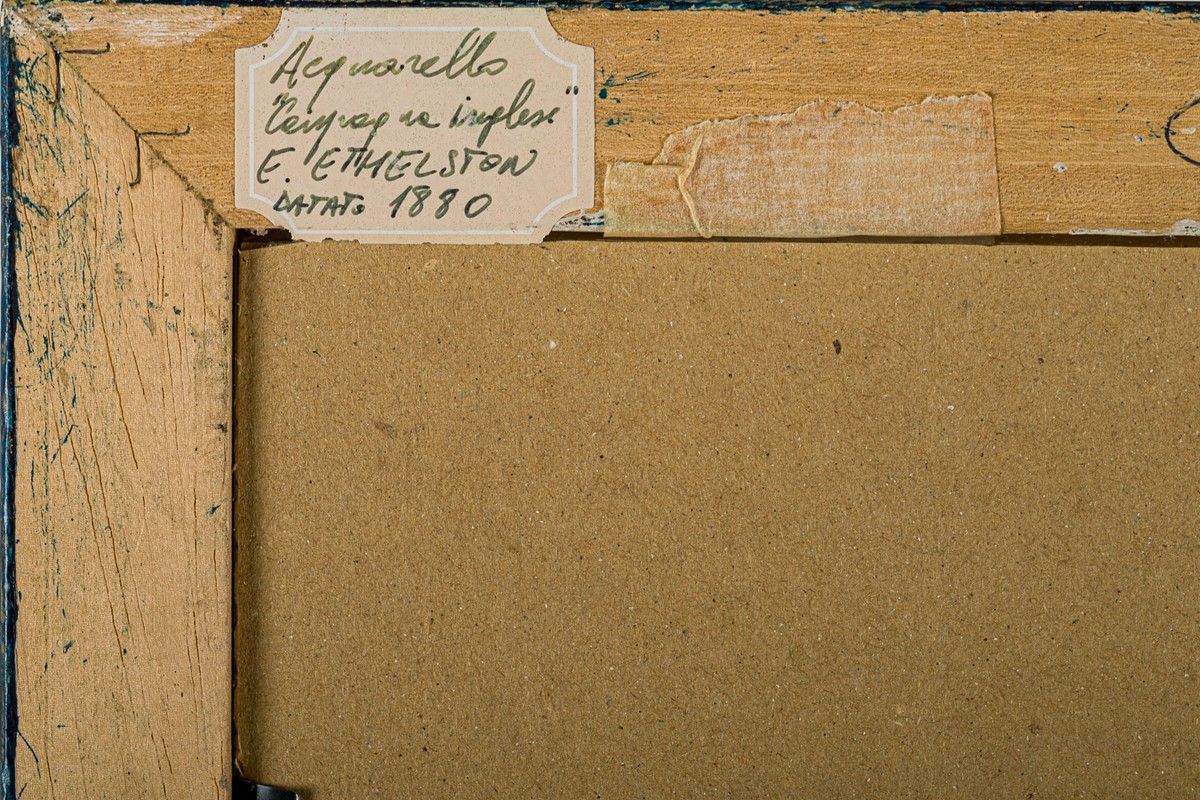 Acquarello
"Campagna inglese"
E. ETHELSTON
DATATO 1880